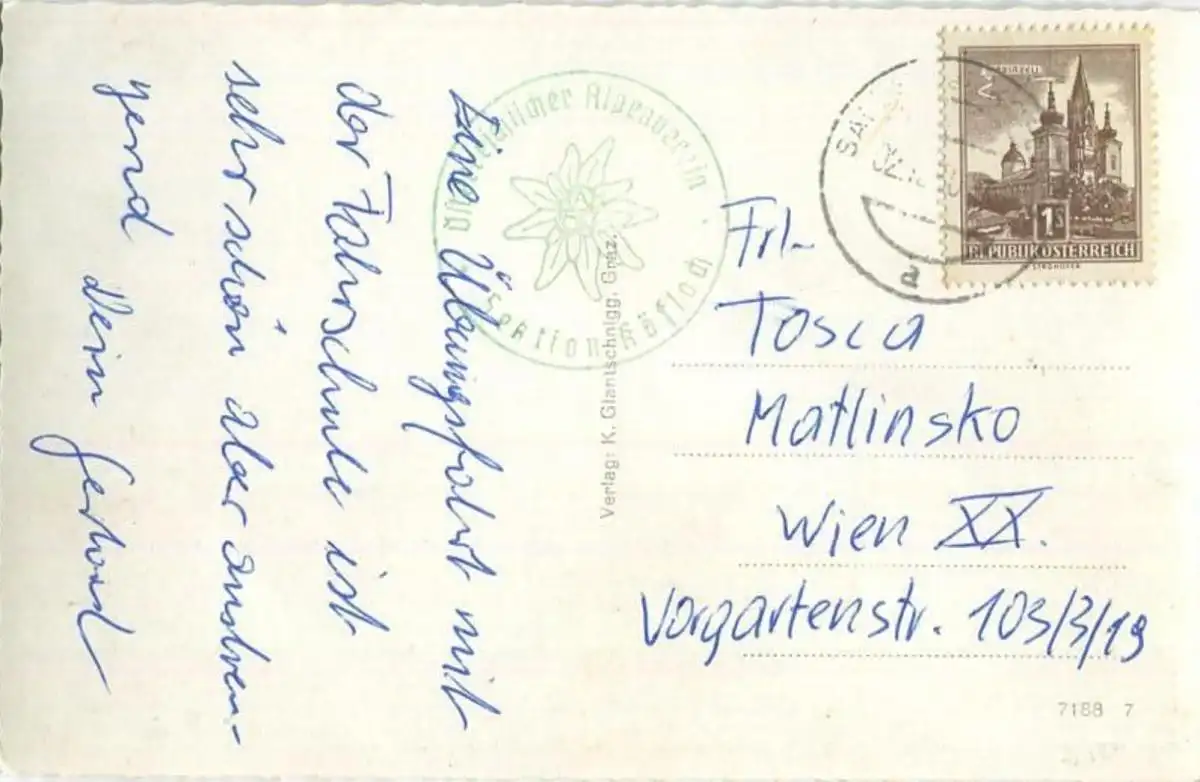 Eine Übungsfahrt mit
der Fahrschule ist
sehr schön aber anstren-
gend
Dein Gerhard
Alpenverein
Sektion Köflach
Verlag: K. Glantschnigg, Graz.
MARIAZELL
1S
REPUBLIK ÖSTERREICH
STROHOFER
a
Frl.
Tosca
Matlinsko
Wien XX.
Vorgartenstr. 103/3/19
7188 7